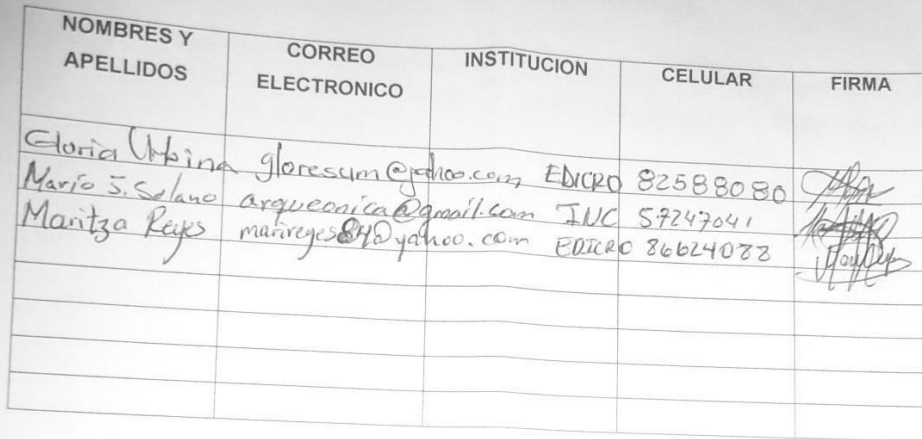 NOMBRES Y APELLIDOS CORREO ELECTRONICO INSTITUCION CELULAR FIRMA
Gloria Urbina gloresum@yahoo.com EDICRO 82588080
Mario S. Solano arqueonica@gmail.com INC 57247041
Maritza Reyes marireyes84@yahoo.com EDICRO 86624088